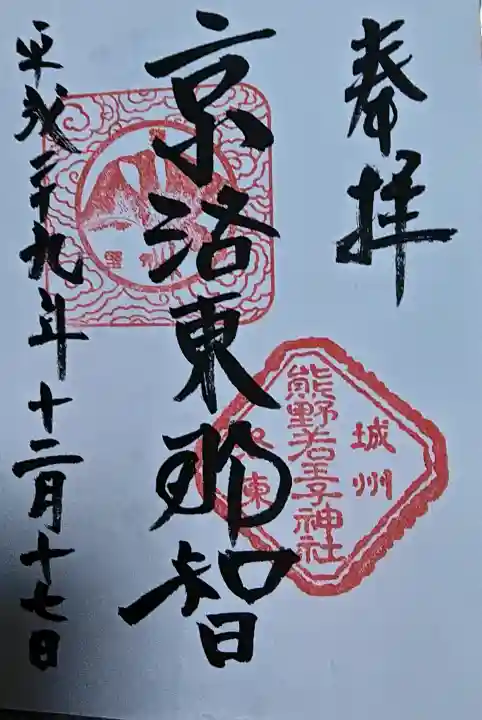 奉拝
城州
熊野若王子神社
洛東
京洛東那智
平成二十九年十二月十七日